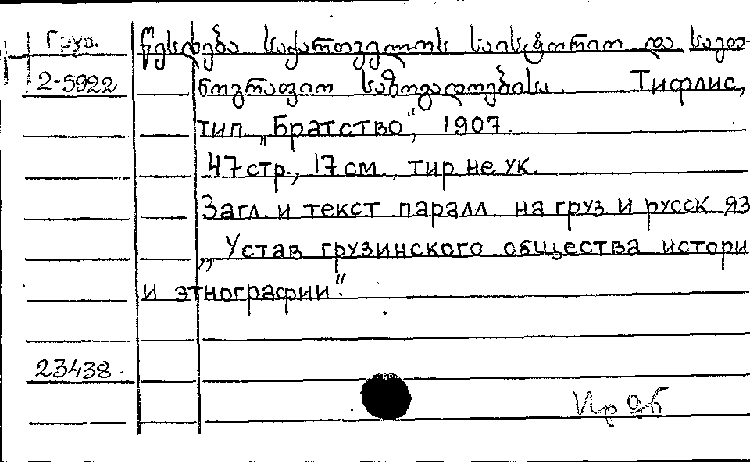 Груз. წესდება საქართველოს საისტორიო და საეთ-
2-5922 ნოგრაფიო საზოგადოებისა. Тифлис,
тип. „Братство", 1907.
47 стр., 17 см., тир. не ук.
Загл. и текст паралл. на груз и русск яз
„Устав грузинского общества истори
и этнографии".
23438.